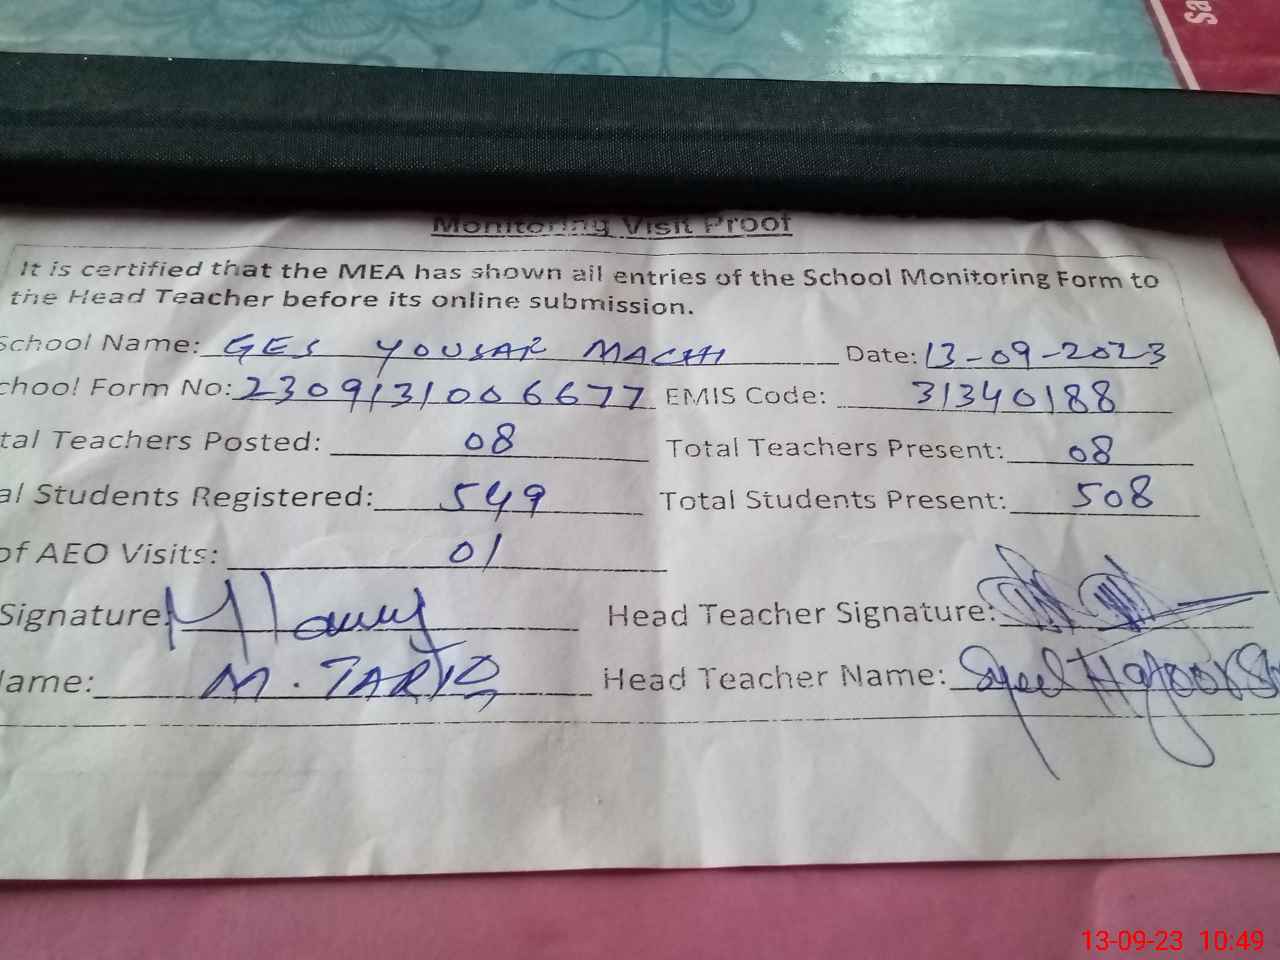 Sa
Monitoring Visit Proof
It is certified that the MEA has shown all entries of the School Monitoring Form to
the Head Teacher before its online submission.
School Name: GES YOUSAF MACHI Date: 13-09-2023
chool Form No: 2309131006677 EMIS Code: 31340188
tal Teachers Posted: 08 Total Teachers Present: 08
al Students Registered: 549 Total Students Present: 508
of AEO Visits: 01
Signature: Head Teacher Signature:
ame: M. TARIQ Head Teacher Name: Syed
13-09-23 10:49